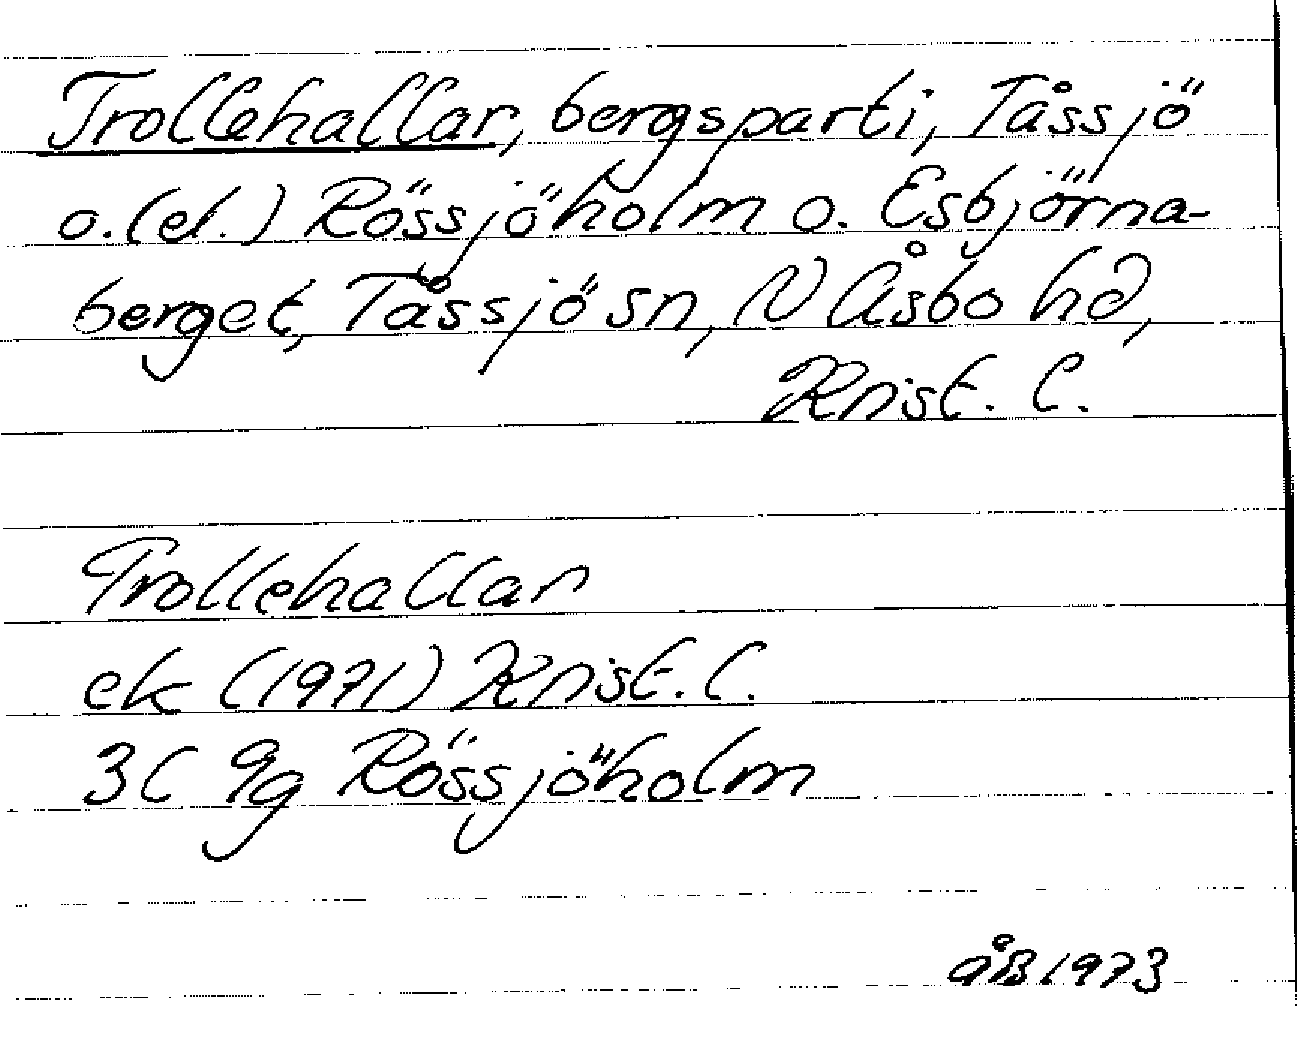 Trollehallar, bergsparti, Tåssjö
o. (el.) Rössjöholm o. Esbjörna-
berget, Tåssjö sn, N Åsbo hd,
Krist. l.
Trollehallar
ek (1971) Krist. l.
3C 9g Rössjöholm
åB 1973